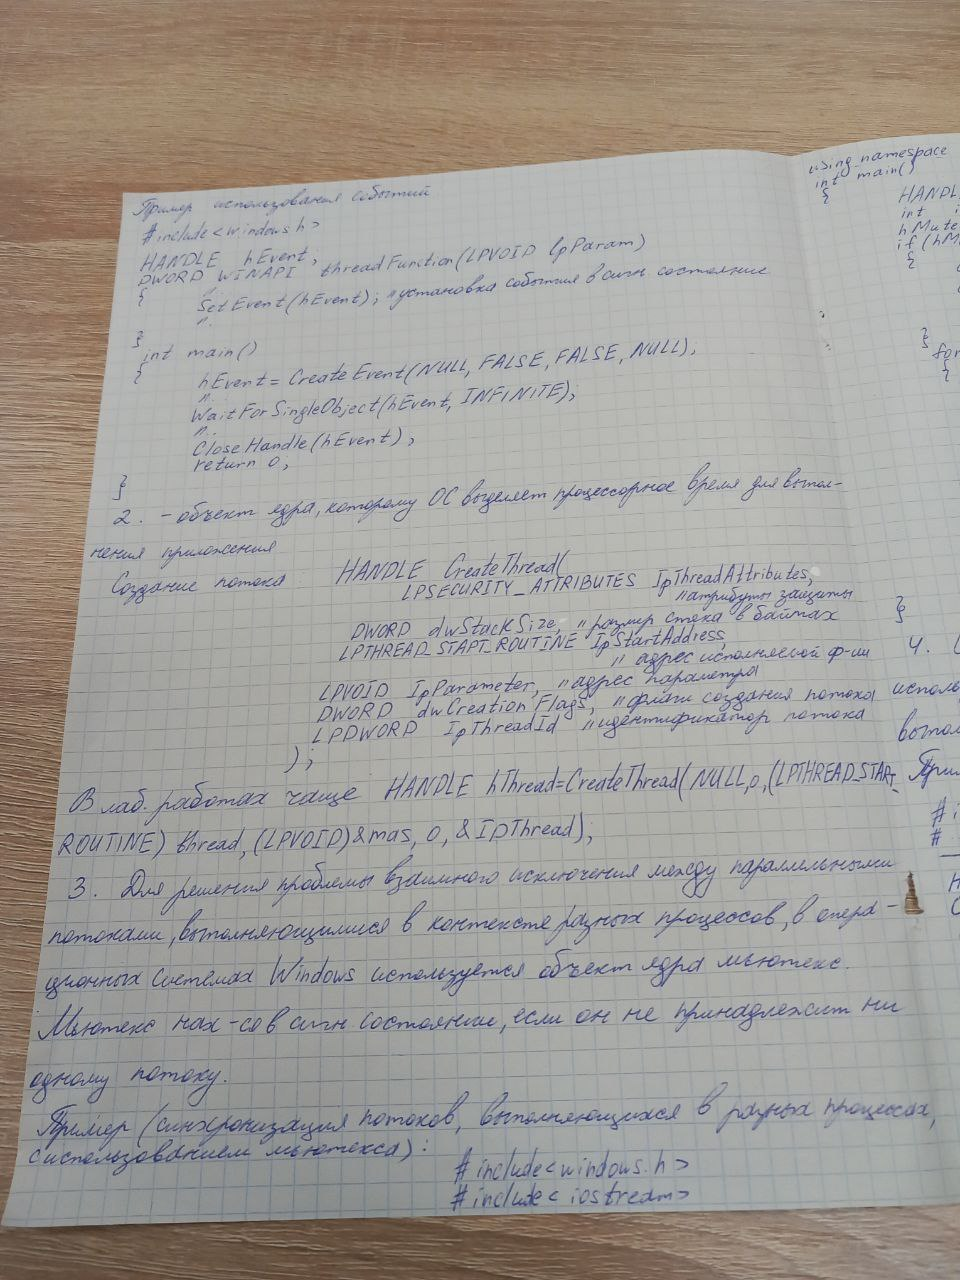 Пример использования событий
#include<windows.h>
HANDLE hEvent;
DWORD WINAPI threadFunction(LPVOID lpParam)
{
//.
SetEvent(hEvent); //установка события в сигн. состояние
//.
}
int main()
{
hEvent=CreateEvent(NULL, FALSE, FALSE, NULL);
//.
WaitForSingleObject(hEvent, INFINITE);
//.
CloseHandle(hEvent);
return 0;
}
2. - объект ядра, которому ОС выделяет процессорное время для выпол-
нения приложения
Создание потока: HANDLE CreateThread(
LPSECURITY_ATTRIBUTES IpThreadAttributes,
//атрибуты защиты
DWORD dwStackSize, //размер стека в байтах
LPTHREAD_START_ROUTINE IpStartAddress,
// адрес исполняемой ф-ии
LPVOID IpParameter, //адрес параметра
DWORD dwCreationFlags, //флаги создания потока
LPDWORD IpThreadId //идентификатор потока
);
В лаб. работах чаще HANDLE hThread=CreateThread(NULL,0,(LPTHREAD_START_
ROUTINE) thread, (LPVOID)&mas, 0, &IDThread);
3. Для решения проблемы взаимного исключения между параллельными
потоками, выполняющимися в контексте разных процессов, в опера-
ционных системах Windows используется объект ядра мьютекс.
Мьютекс нах-ся в сигн. состоянии, если он не принадлежит ни
одному потоку.
Пример (синхронизация потоков, выполняющихся в разных процессах,
с использованием мьютекса):
#include<windows.h>
#include<iostream>
using namespace
int main()
{
HANDLE
int i
hMute
if(hM
{
}
for
{
}
4.
исполь
выпол
При
#i
#